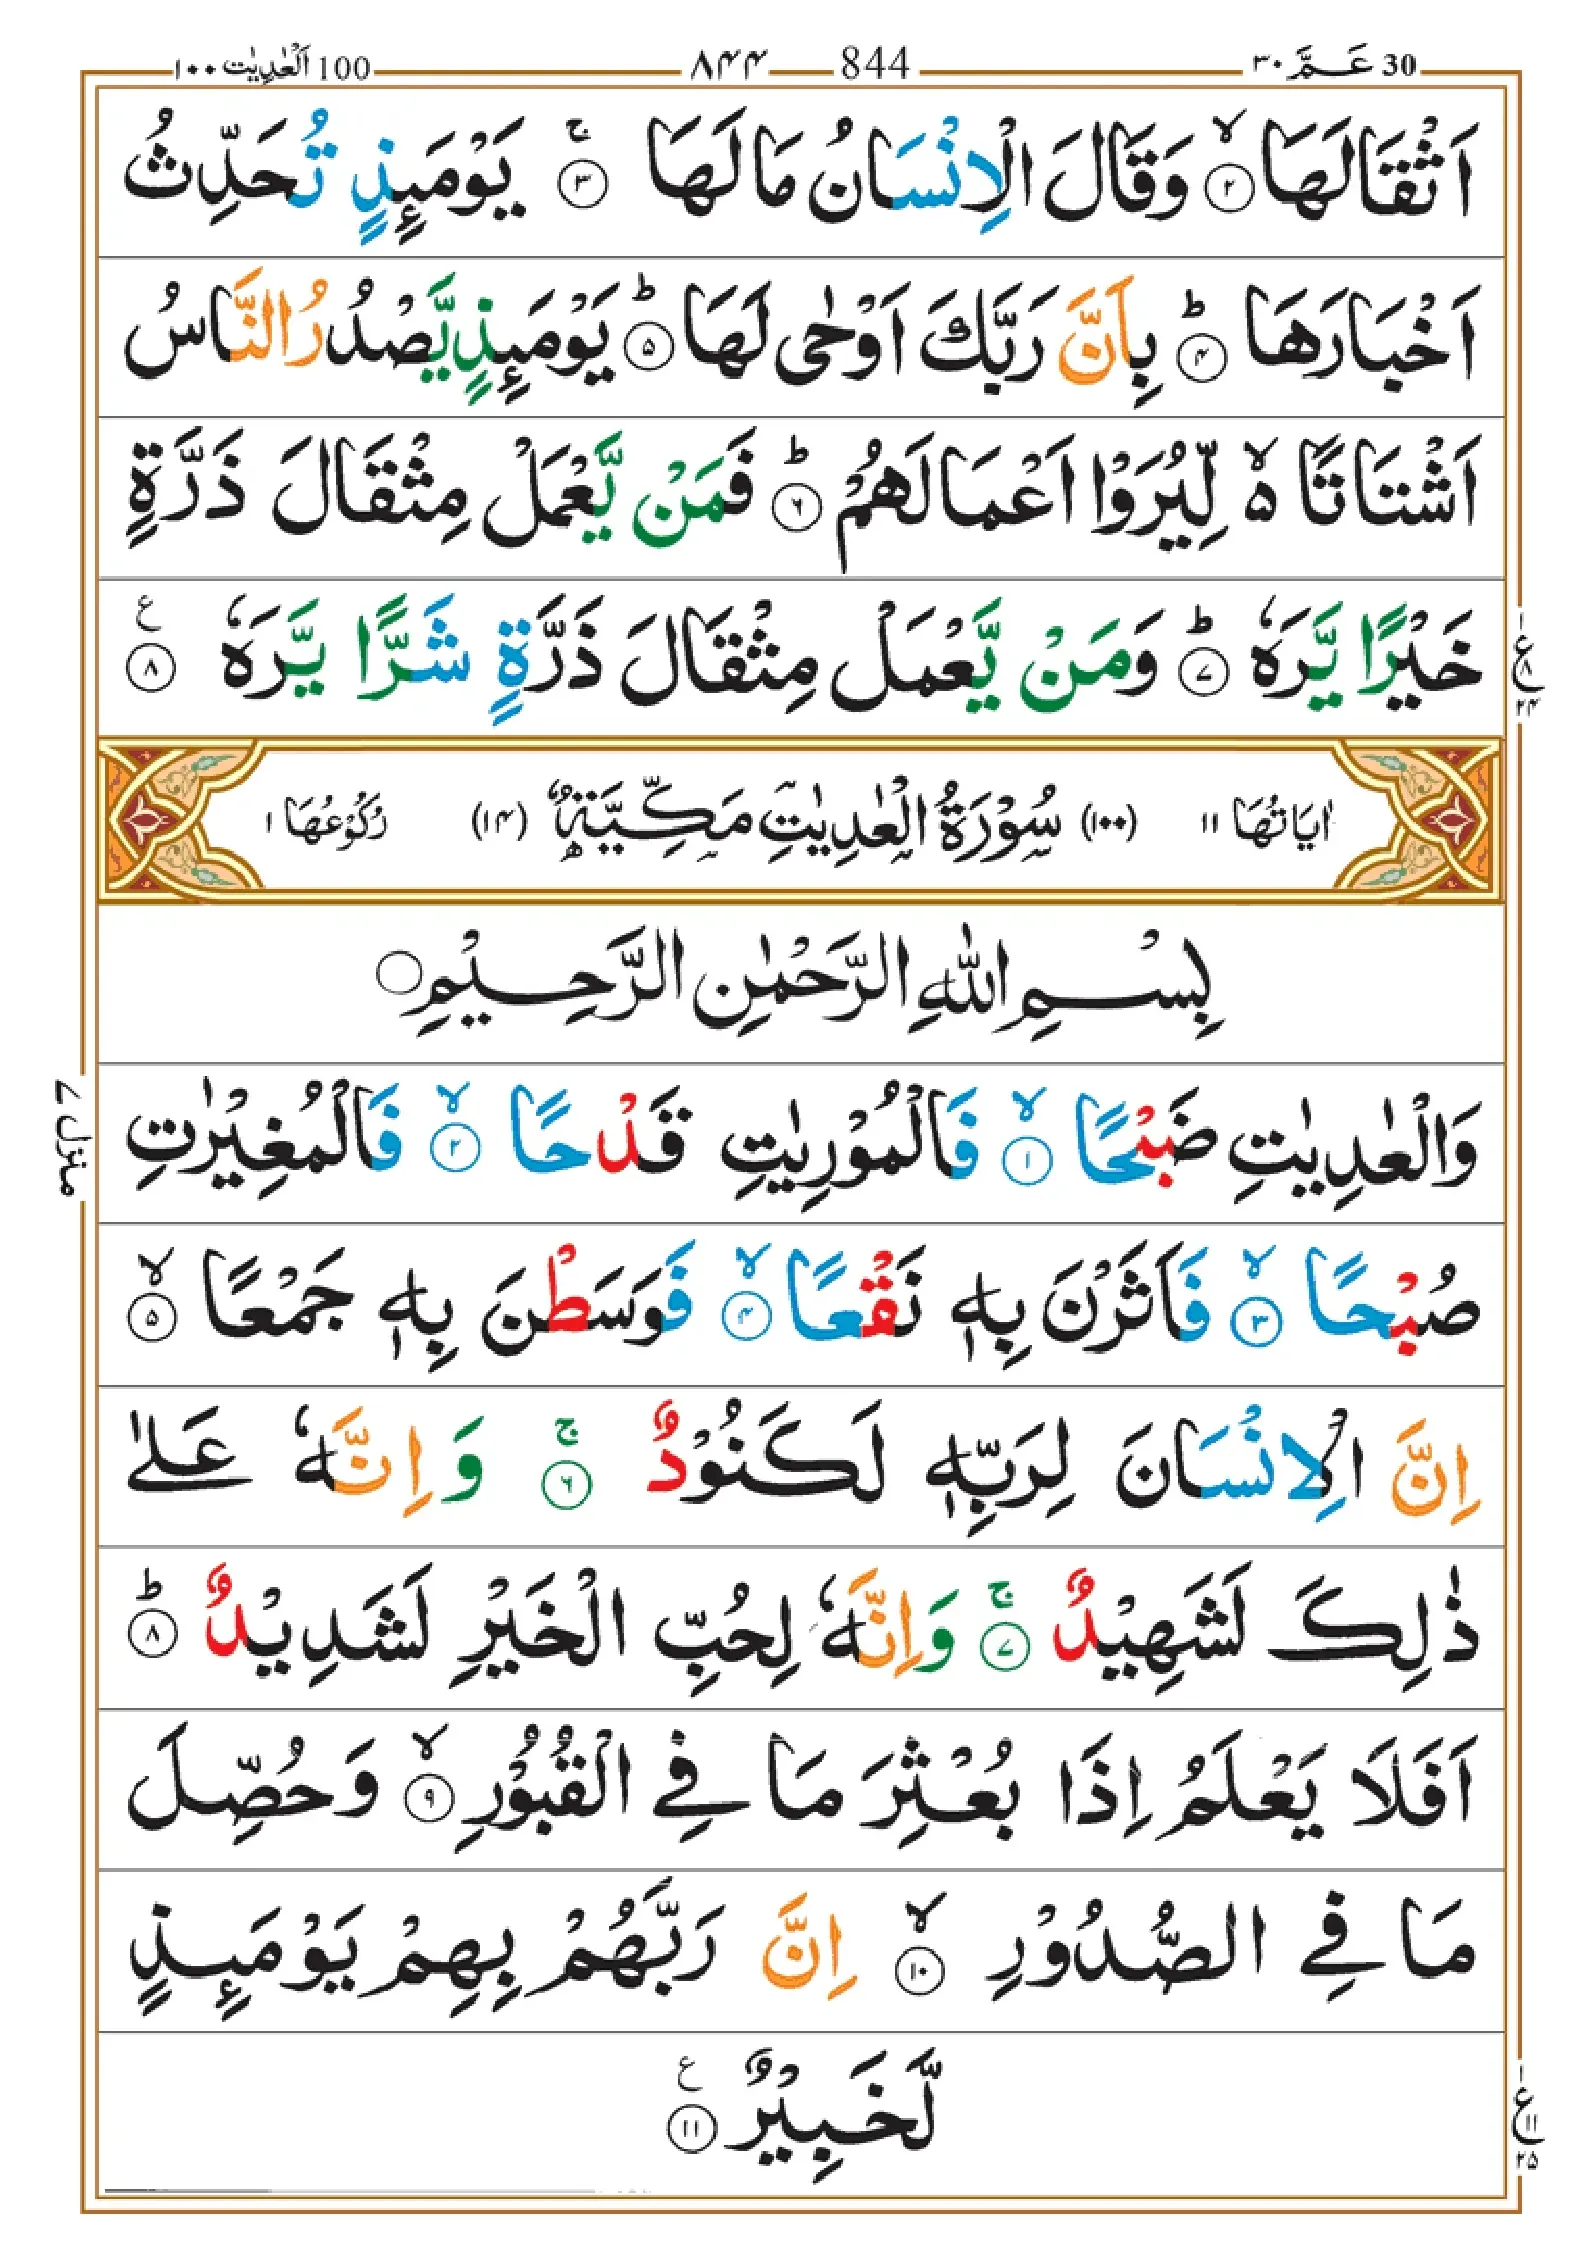 30 عَـمَّ ۳۰ 844 ۸۴۴ 100 اَلْعٰدِيٰت ۱۰۰
اَثْقَالَهَا ۙ﴿۲﴾ وَقَالَ الْاِنْسَانُ مَا لَهَا ۚ﴿۳﴾ يَوْمَىِٕذٍ تُحَدِّثُ
اَخْبَارَهَا ؕ﴿۴﴾ بِاَنَّ رَبَّكَ اَوْحٰى لَهَا ؕ﴿۵﴾ يَوْمَىِٕذٍ يَّصْدُرُ النَّاسُ
اَشْتَاتًا ۙ۵ لِّيُرَوْا اَعْمَالَهُمْ ؕ﴿۶﴾ فَمَنْ يَّعْمَلْ مِثْقَالَ ذَرَّةٍ
خَيْرًا يَّرَهٗ ؕ﴿۷﴾ وَمَنْ يَّعْمَلْ مِثْقَالَ ذَرَّةٍ شَرًّا يَّرَهٗ ﴿۸﴾ ع
ع ۱ ۸ ۲۴
اٰيَاتُهَا ۱۱ (۱۰۰) سُوْرَةُ الْعٰدِيٰتِ مَكِّيَّةٌ (۱۴) رُكُوْعُهَا ۱
بِسْمِ اللّٰهِ الرَّحْمٰنِ الرَّحِيْمِ
وَالْعٰدِيٰتِ ضَبْحًا ۙ﴿۱﴾ فَالْمُوْرِيٰتِ قَدْحًا ۙ﴿۲﴾ فَالْمُغِيْرٰتِ
منزل ۷
صُبْحًا ۙ﴿۳﴾ فَاَثَرْنَ بِهٖ نَقْعًا ۙ﴿۴﴾ فَوَسَطْنَ بِهٖ جَمْعًا ۙ﴿۵﴾
اِنَّ الْاِنْسَانَ لِرَبِّهٖ لَكَنُوْدٌ ۚ﴿۶﴾ وَ اِنَّهٗ عَلٰى
ذٰلِكَ لَشَهِيْدٌ ۚ﴿۷﴾ وَاِنَّهٗ لِحُبِّ الْخَيْرِ لَشَدِيْدٌ ؕ﴿۸﴾
اَفَلَا يَعْلَمُ اِذَا بُعْثِرَ مَا فِي الْقُبُوْرِ ۙ﴿۹﴾ وَحُصِّلَ
مَا فِي الصُّدُوْرِ ۙ﴿۱۰﴾ اِنَّ رَبَّهُمْ بِهِمْ يَوْمَىِٕذٍ
لَّخَبِيْرٌ ﴿۱۱﴾ ع
ع ۱ ۱۱ ۲۵